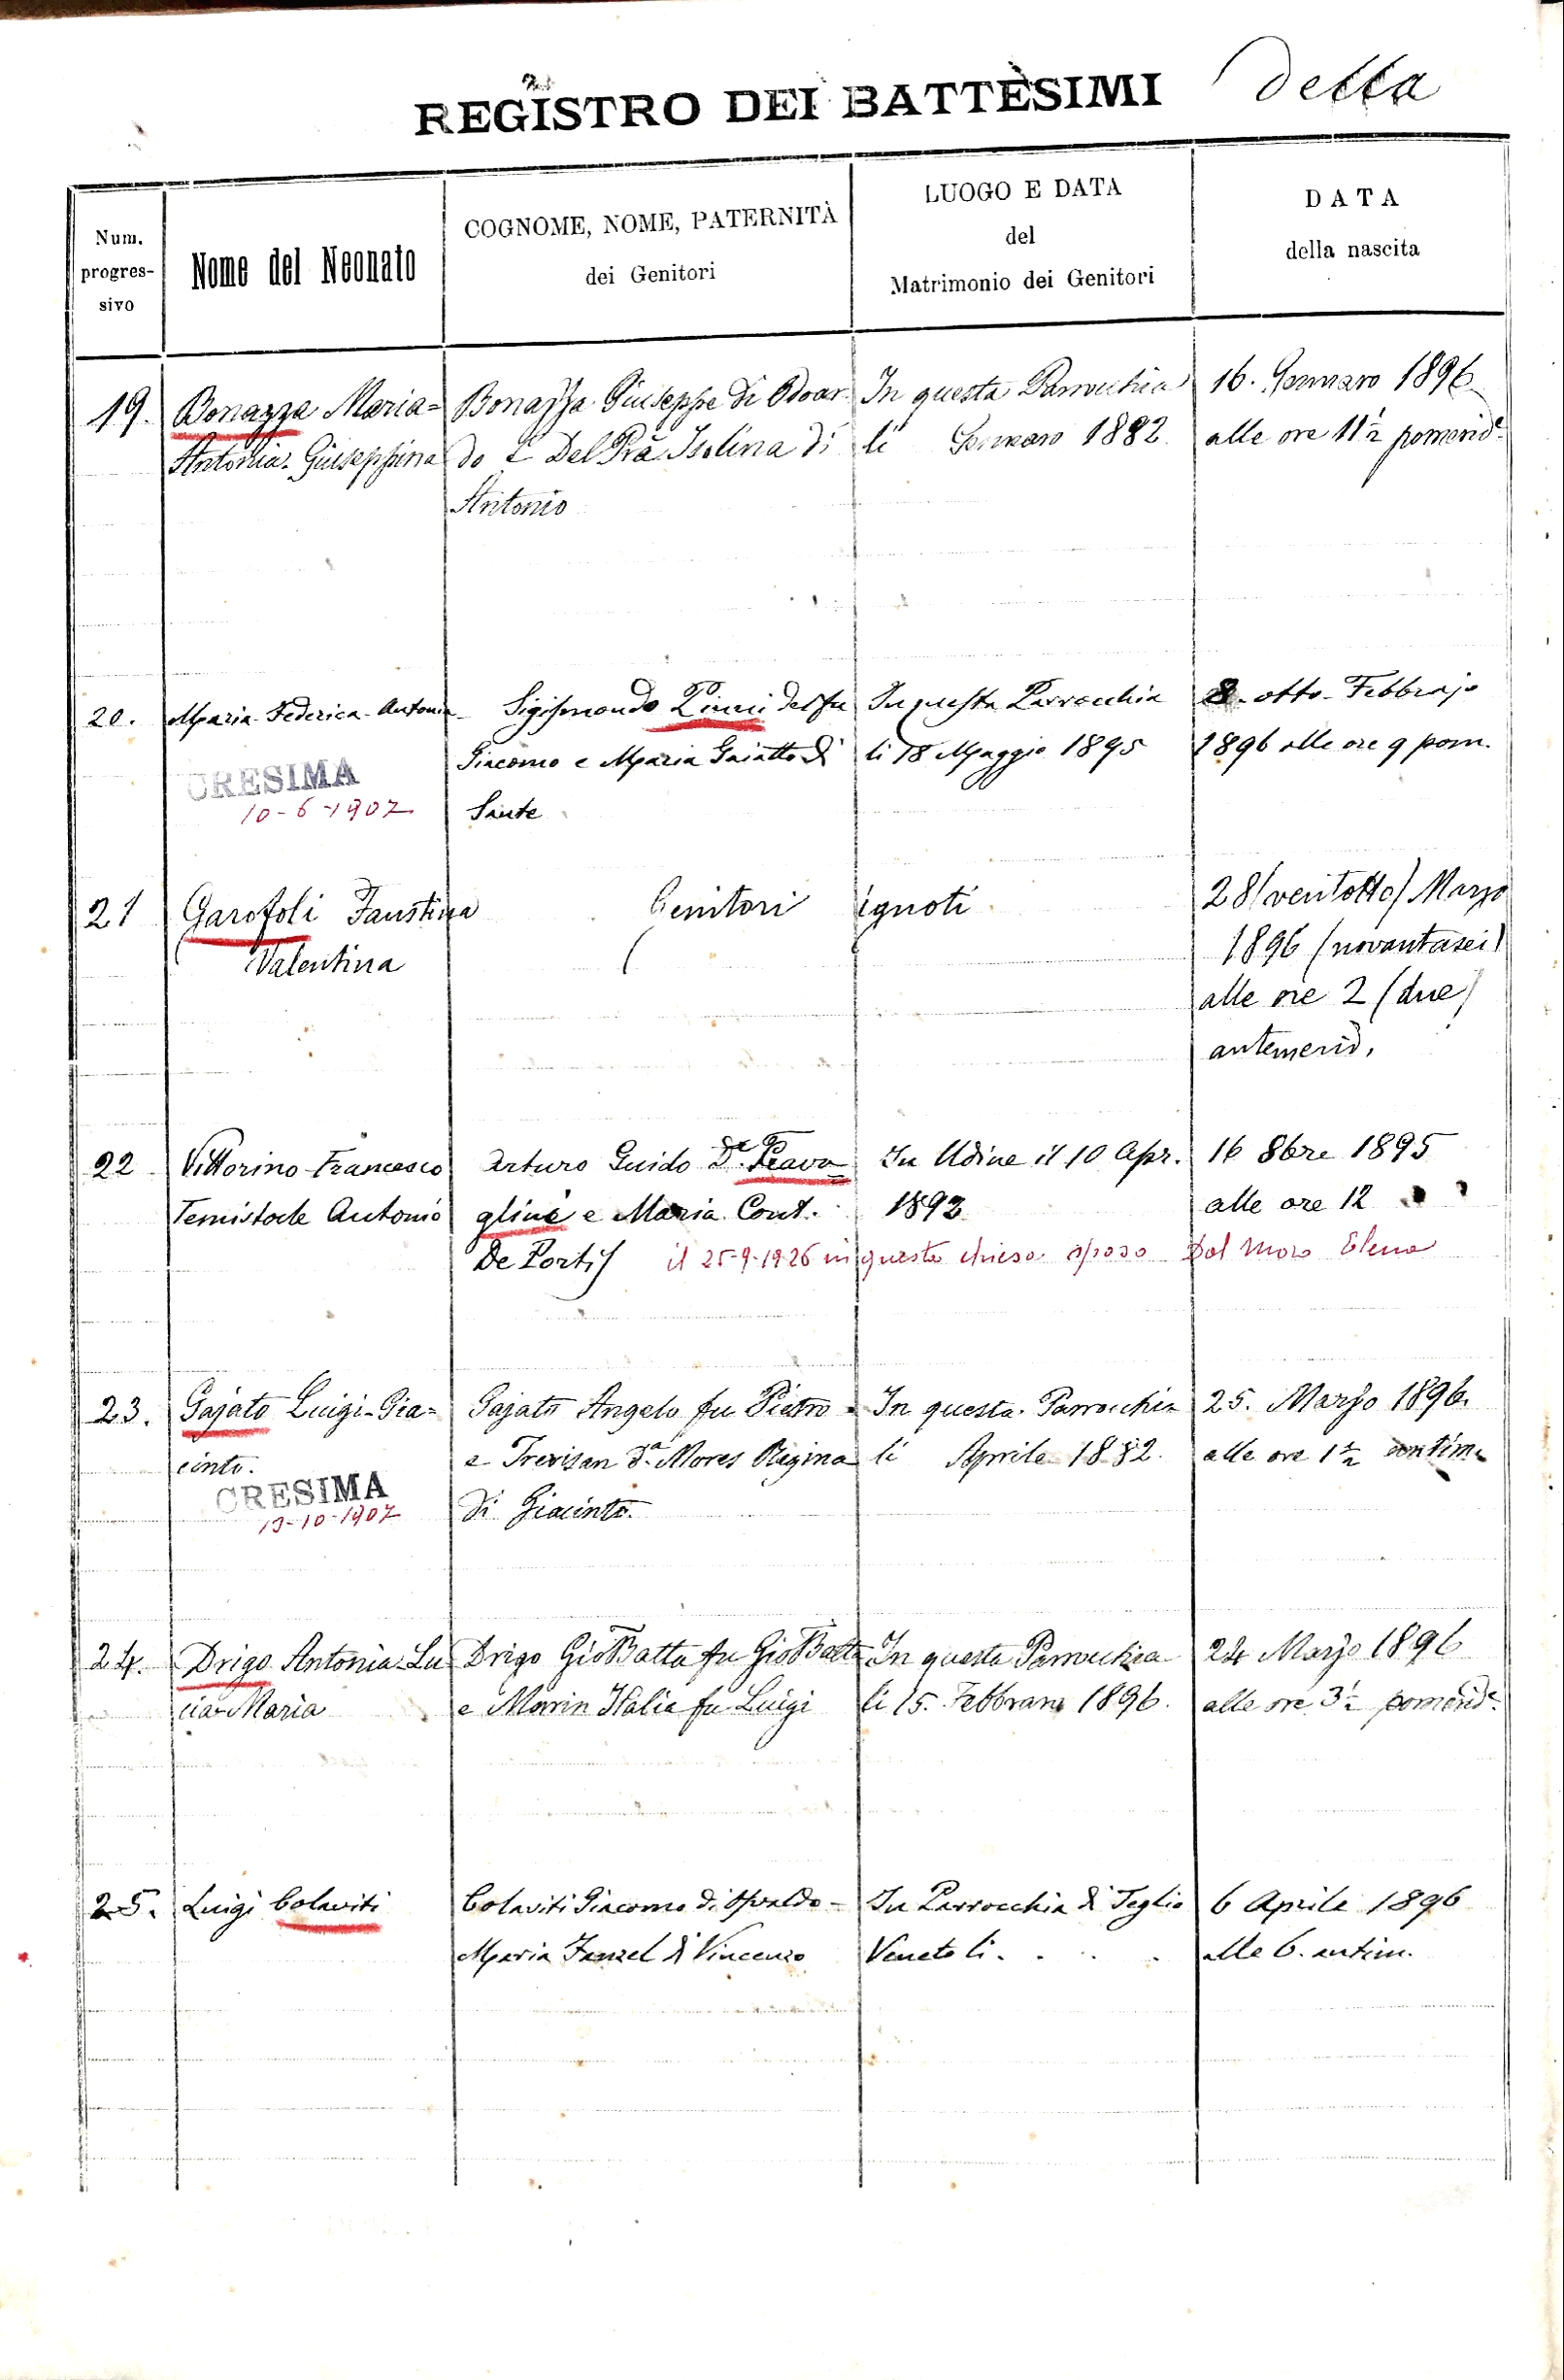 REGISTRO DEI BATTÈSIMI della
Num. progres- sivo
Nome del Neonato
COGNOME, NOME, PATERNITÀ
dei Genitori
LUOGO E DATA
del
Matrimonio dei Genitori
DATA
della nascita
19. Bonazza Maria= Bonazza Giuseppe di Odoar- In questa Parrocchia 16. Gennaro 1896
Antonia-Giuseppina do e Del Prà Isolina di li Gennaro 1882. alle ore 11½ pomerid.e
Antonio
20. Maria Federica Antonia Sigismondo del fu In questa Parrocchia 8. otto Febbrajo
Giacomo e Maria Gaiatto di li 18 Maggio 1895 1896 alle ore 9 pom.
CRESIMA
10-6-1907 Sante
21 Garofoli Faustina Genitori ignoti 28 (ventotto) Marzo
Valentina 1896 (novantasei)
alle ore 2 (due)
antemerid.
22 Vittorino Francesco Arturo Guido Dr. Prava In Udine il 10 Apr. 16 8bre 1895
Temistocle Antonio glini e Maria Cont. 1893 alle ore 12
De Portis il 25-9-1926 in questa chiesa sposò Dal Moro Elena
23. Gajato Luigi-Gia= Gajato Angelo fu Pietro In questa Parrocchia 25. Marzo 1896.
cinto. e Trevisan d.a Mores Regina li Aprile 1882. alle ore 1½ antim.
CRESIMA
13-10-1907 di Giacinto.
24. Drigo Antonia Lu Drigo GioBatta fu GioBatta In questa Parrocchia 24 Marzo 1896
cia Maria e Marin Italia fu Luigi li 15. Febbraro 1896. alle ore 3½ pomerid.e
25. Luigi Colaviti Colaviti Giacomo di Osvaldo - In Parrocchia di Teglio 6 Aprile 1896
Maria di Vincenzo Veneto li . . . . alle 6. antim.